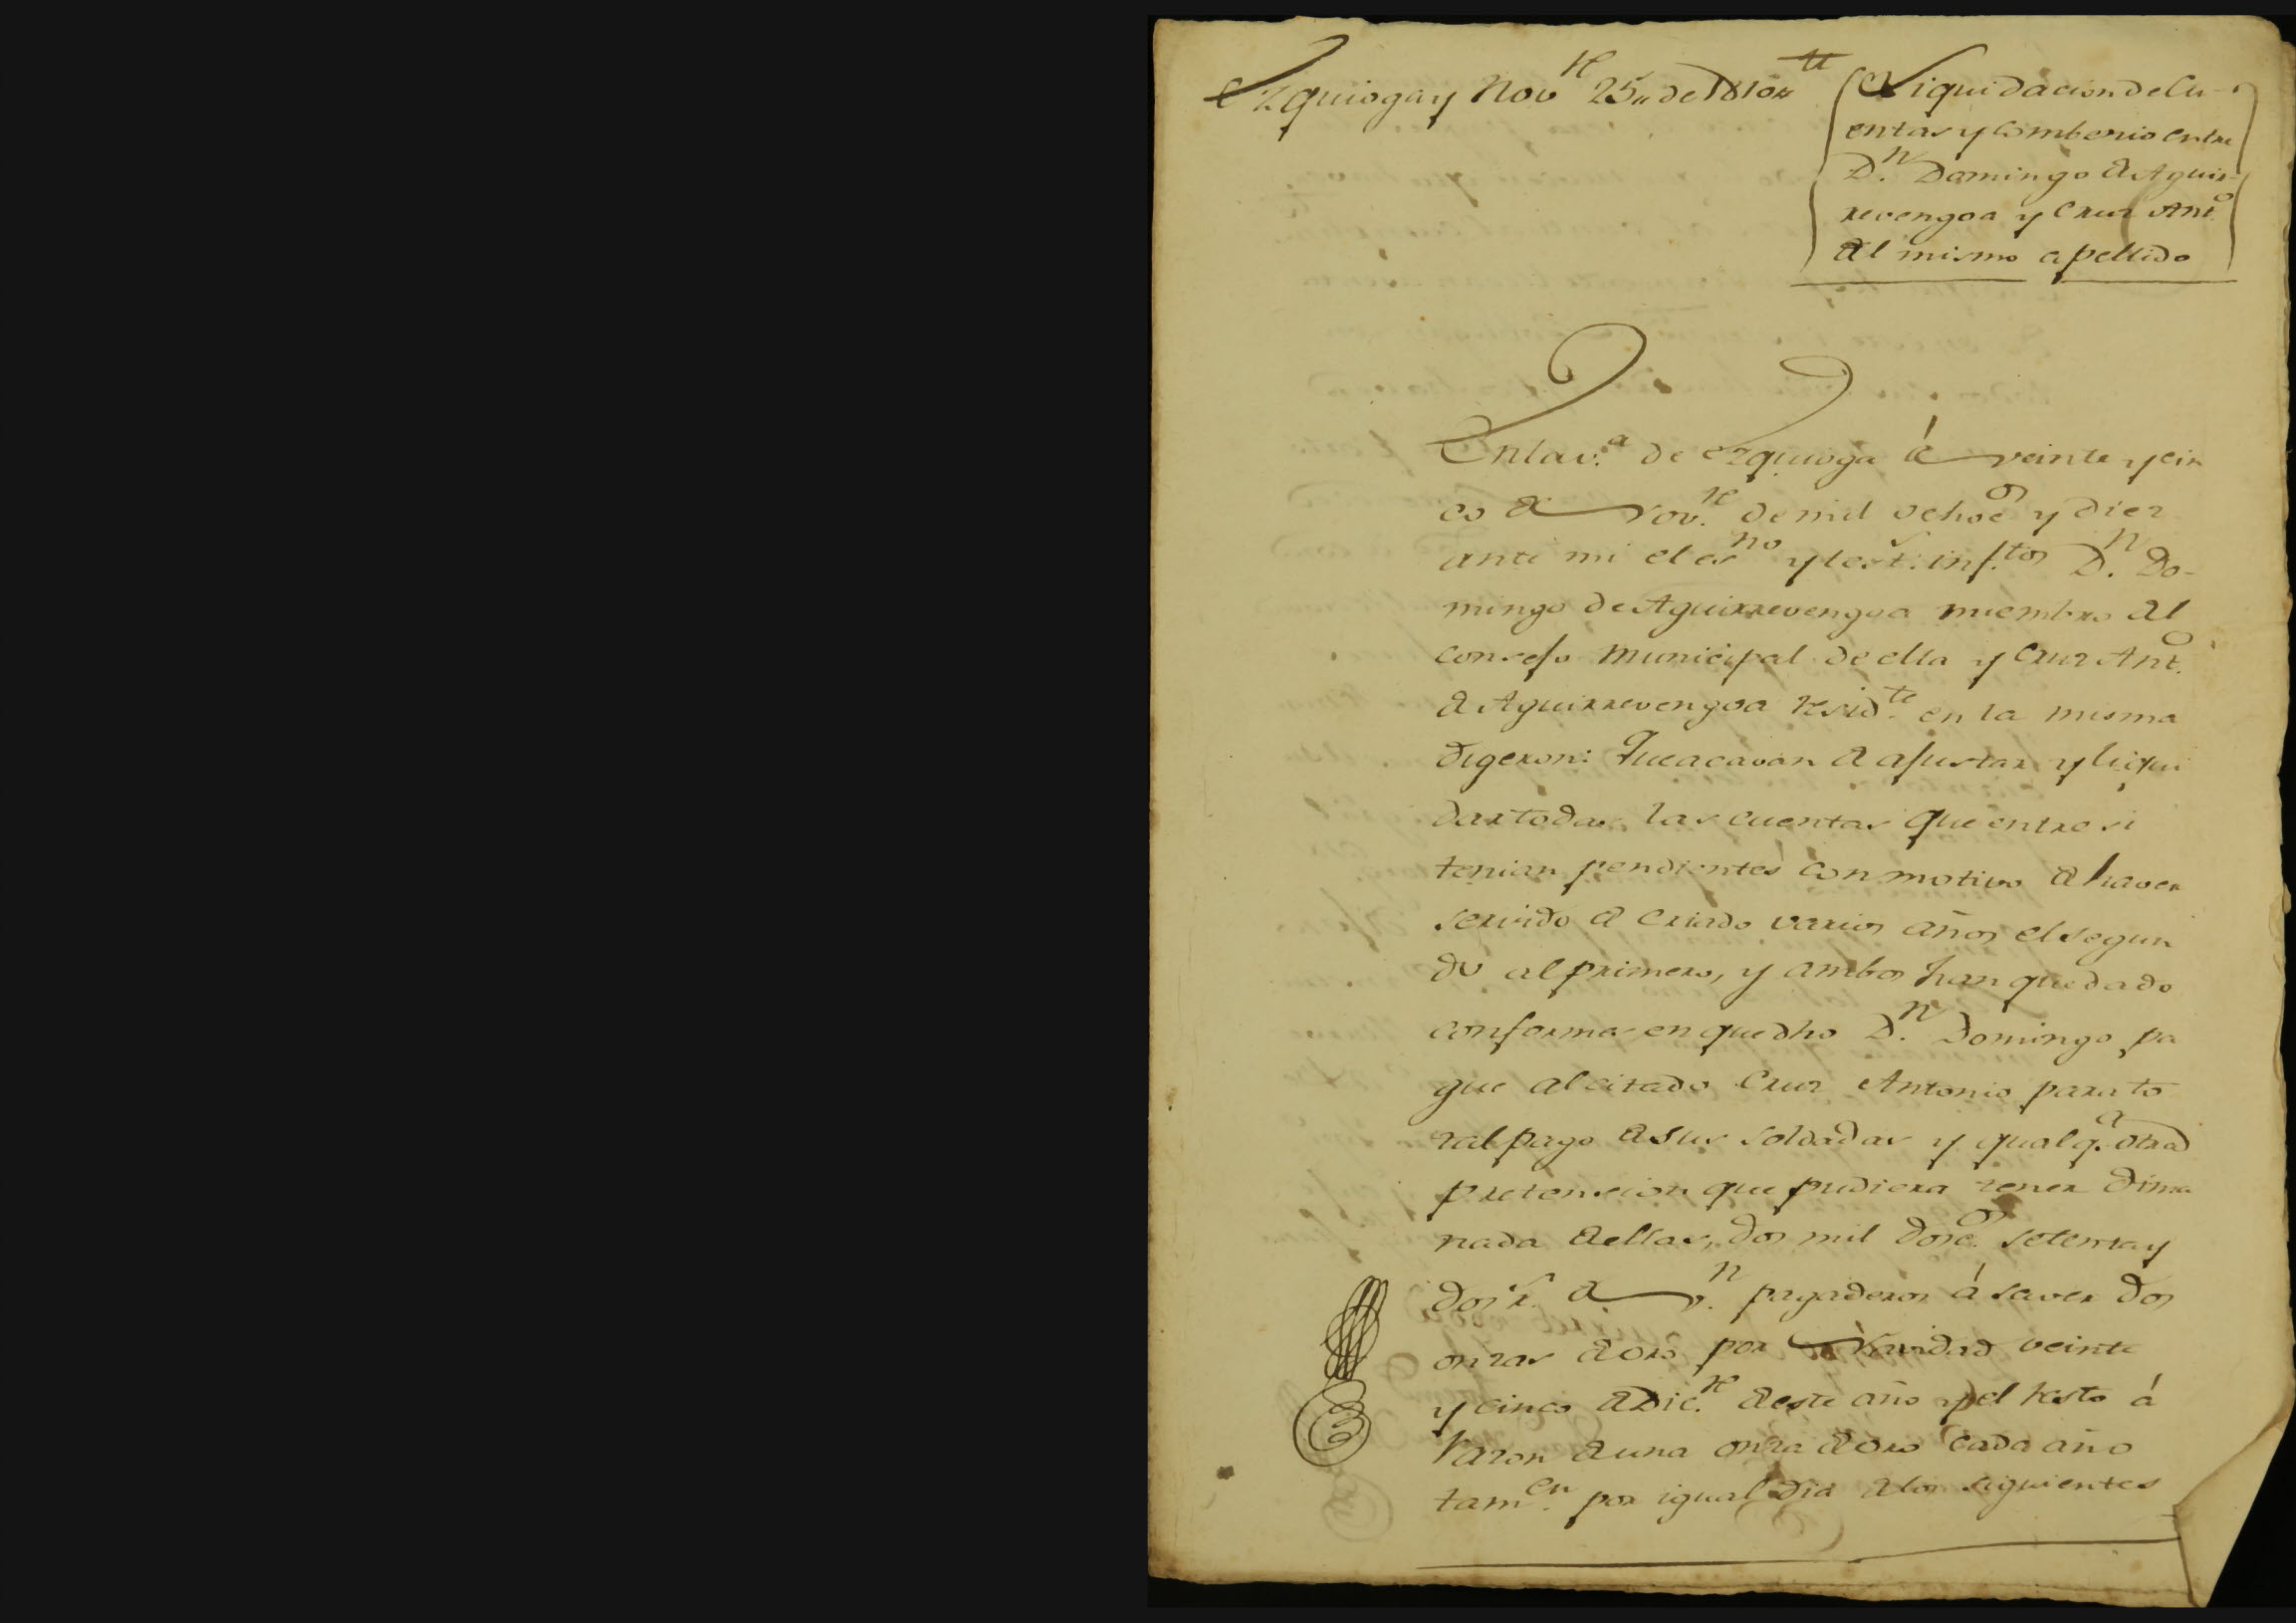 Ezquioga y Nov.re 25,, de 1810,,
Liquidacion de Cu-
entas y Combenio entre
D.n Domingo de Aguir-
revengoa y Cruz Ant.o
del mismo apellido
En la v.a de Ezquioga á veinte y cin
co de Nov.re de mil ochoc.os y diez
ante mi el es.no y test.s inf.tos D.n Do-
mingo de Aguirrevengoa miembro del
consejo Municipal de ella y Cruz Ant.o
de Aguirrevengoa resid.te en la misma
digeron: Que acavan de ajustar y liqui
dar todas las cuentas que entre si
tenian pendientes con motivo de haver
servido de Criado varios años el segun
do al primero, y ambos han quedado
conformes en que dho D.n Domingo pa
gue al citado Cruz Antonio para to
tal pago de sus soldadas y qualq.a otra
pretension que pudiera tener dima
nada de ellas, dos mil dosc.os setenta y
dos r.s de v.n pagaderos á saver dos
onzas de oro por Navidad veinte
y cinco de Dic.re de este año y el resto á
razon de una onza de oro cada año
tam.en por igual dia de los siguientes